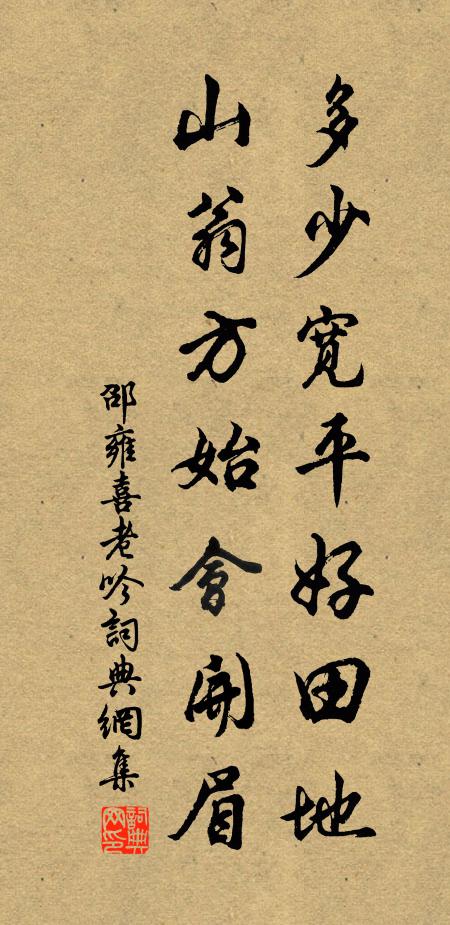 多少寬平好田地
山翁方始會開眉
邵雍喜老吟詞典網集
詞典网印